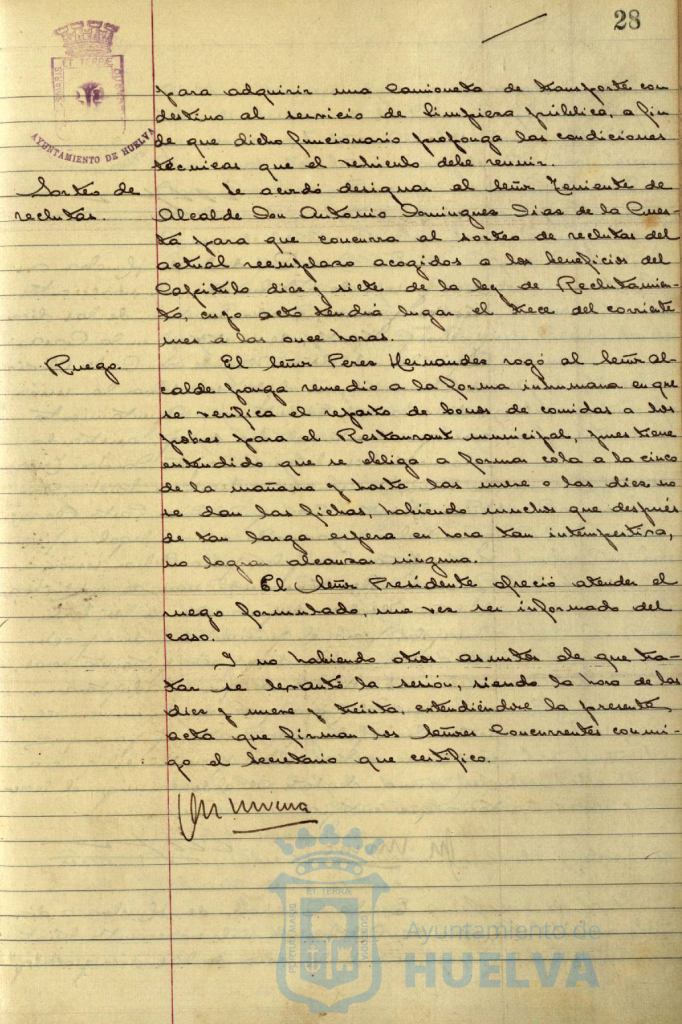 28
AYUNTAMIENTO DE HUELVA
para adquirir una Camioneta de transporte con
destino al servicio de limpieza pública, a fin
de que dicho funcionario proponga las condiciones
técnicas que el vehículo debe reunir.
Sorteo de
reclutas.
Se acordó designar al Señor Teniente de
Alcalde Don Antonio Domingues Dias de la Cues-
ta para que concurra al sorteo de reclutas del
actual reemplazo acogidos a los beneficios del
Capitulo diez y siete de la ley de Reclutamien-
to, cuyo acto tendrá lugar el trece del corriente
mes a las once horas.
Ruego.
El Señor Peres Hernandes rogó al Señor Al-
calde ponga remedio a la forma inhumana en que
se verifica el reparto de bonos de comidas a los
pobres para el Restaurant municipal, pues tiene
entendido que se obliga a formar cola a la cinco
de la mañana y hasta las nueve o las diez no
se dan las fichas, habiendo muchos que después
de tan larga espera en hora tan intempestiva,
no logran alcanzar ninguna.
El Señor Presidente ofreció atender el
ruego formulado, una vez ser informado del
caso.
Y no habiendo otros asuntos de que tra-
tar se levantó la sesión, siendo la hora de las
diez y nueve y treinta, extendiéndose la presente
acta que firman los Señores Concurrentes conmi-
go el Secretario que certifico.
ET TERRA
Ayuntamiento de
HUELVA